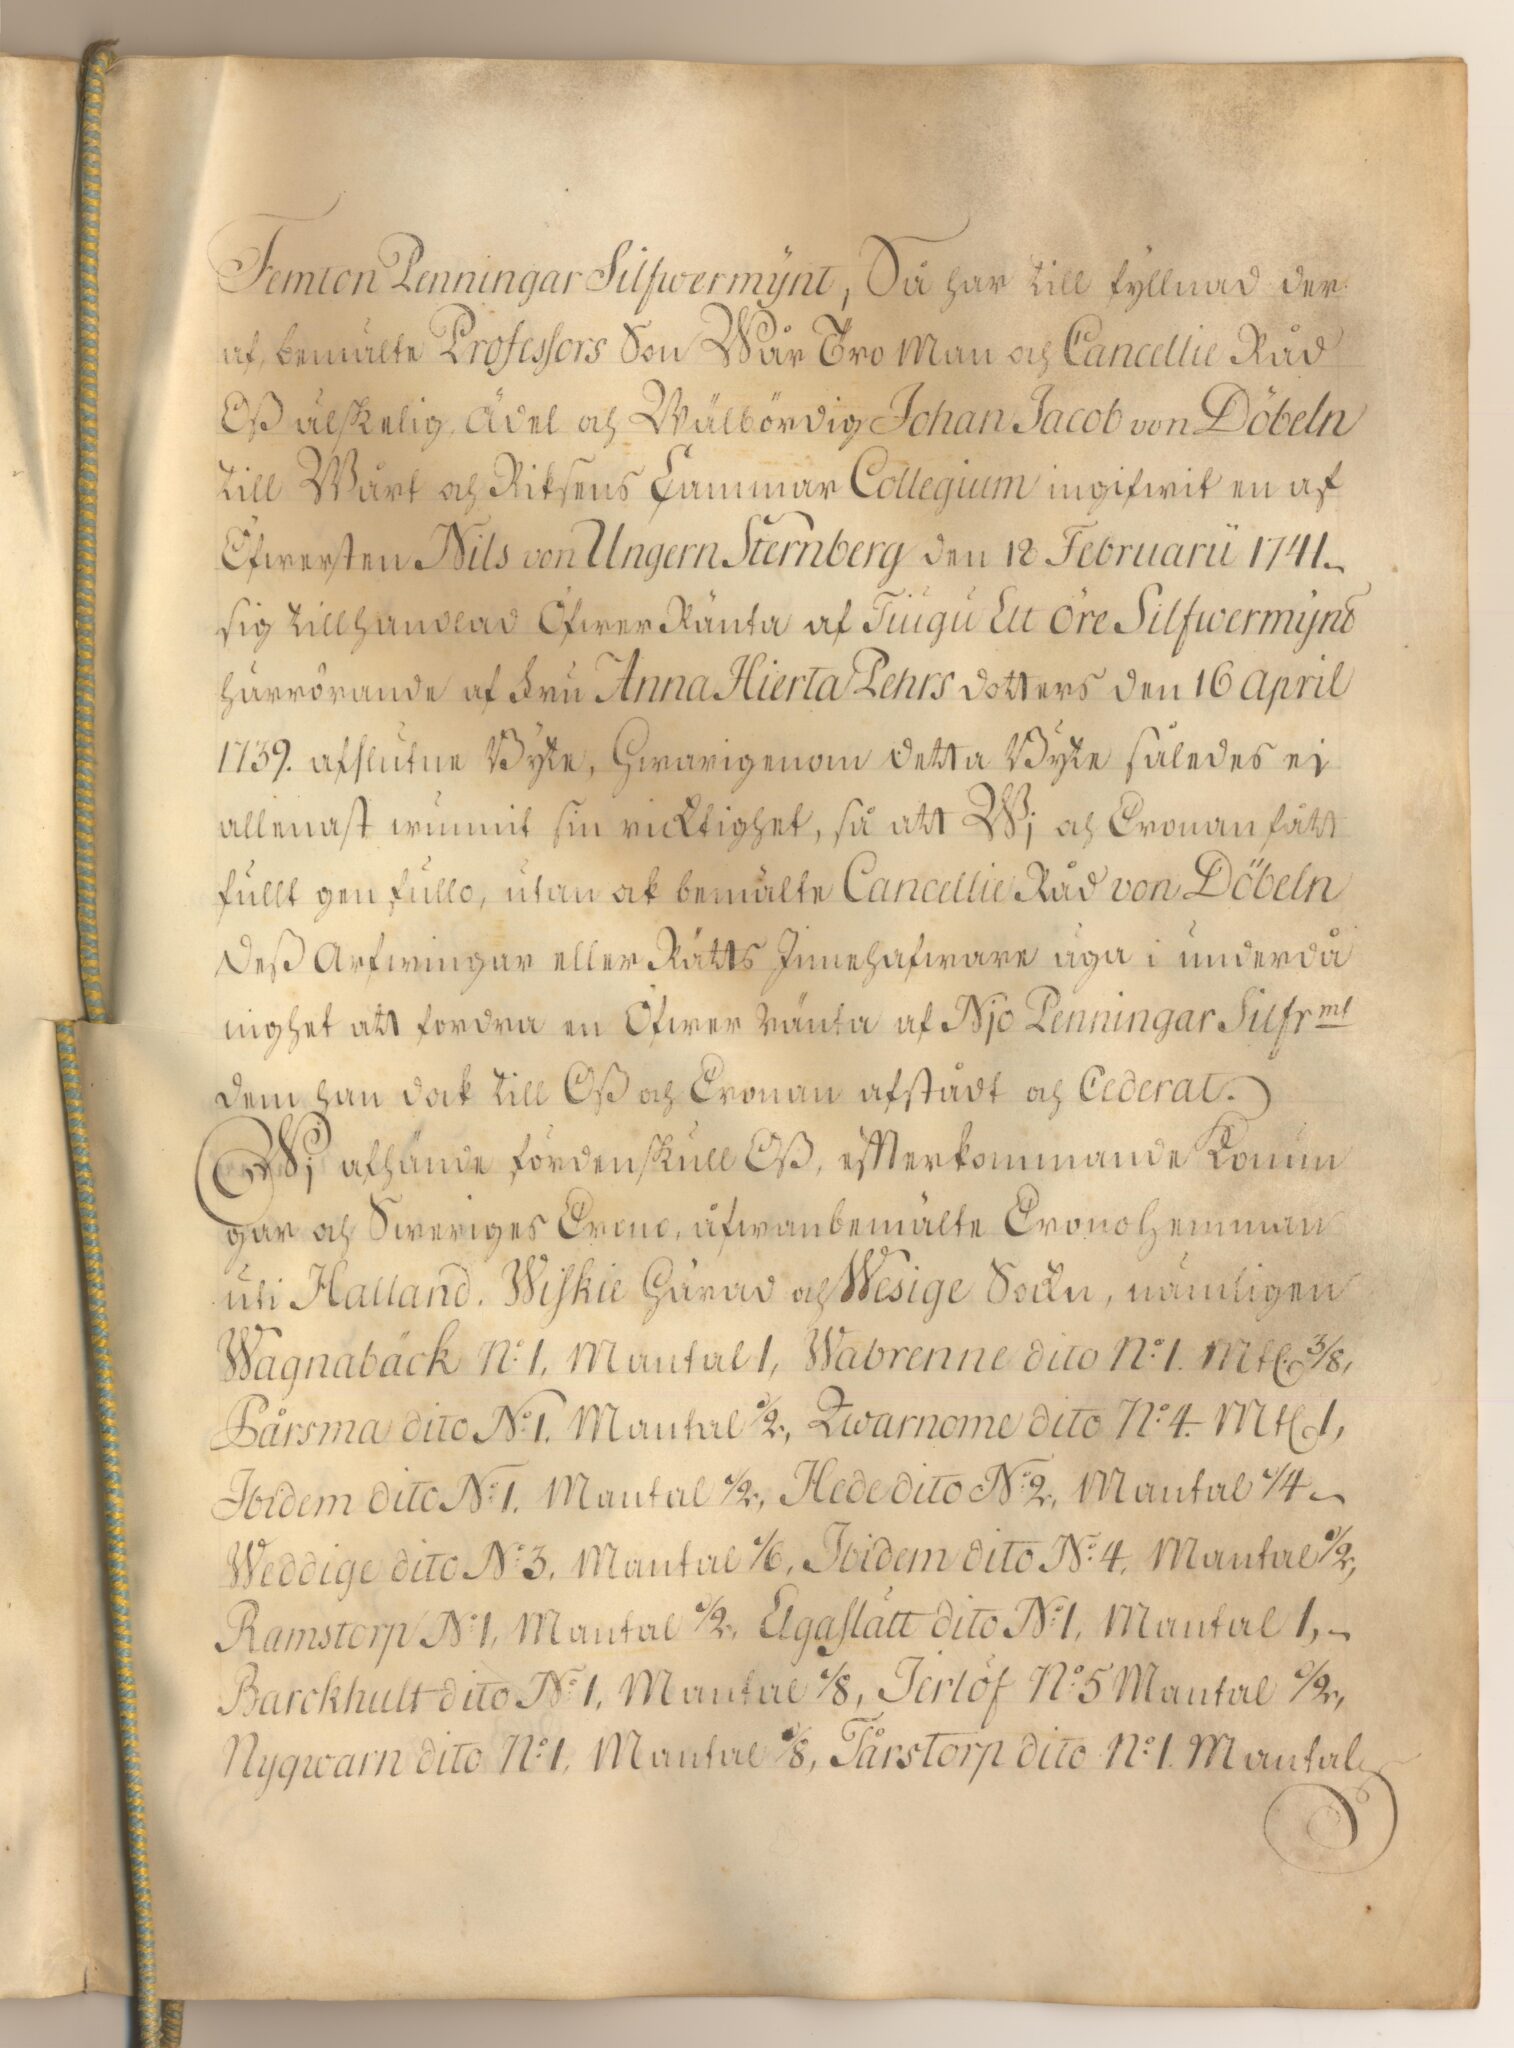 Femton Penningar Silfwermÿnt, Så har till fyllnad der
af, bemälte Professors Son Wår Tro Man och Cancellie Råd
Oß älskelig Ädel och Wälbördig Johan Jacob von Döbeln
till Wårt och Riksens Cammar Collegium ingifwit en af
Öfwersten Nils von Ungern Sternberg den 12 Februarii 1741.
sig tillhandlad Öfwer Ränta af Tiugu Ett öre Silfwermÿnt
härrörande af Fru Anna Hierta Pehrs dotters den 16 April
1739. afslutne Byte, Hwarigenom detta Byte således ej
allenast wunnit sin ricktighet, så att Wj och Cronan fått
fullt gen fullo, utan ok bemälte Cancellie Råd von Döbeln
deß Arfwingar eller Rätts Innehafware äga i underdå
nighet att fordra en Öfwer ränta af Njo Penningar Silfr mt
dem han dok till Oß och Cronan afstådt och Cederat.
Wj afhände fördenskull Oß, efterkommande Konun
gar och Sweriges Crono, åfwanbemälte Cronohemman
uti Halland. Wiskie Härad och Wesige Sockn, nämligen
Wagnabäck No 1, Mantal 1, Wabrenne dito No 1. Mtl 3/8,
Bårsma dito No 1, Mantal 1/2, Qwarnome dito No 4. Mtl 1,
Ibidem dito No 1, Mantal 1/2, Hede dito No 2, Mantal 1/4
Weddige dito No 3, Mantal 1/6, Ibidem dito No 4, Mantal 1/2,
Ramstorp No 1, Mantal 1/2, Elgaslätt dito No 1, Mantal 1,
Barckhult dito No 1, Mantal 1/8, Jerlöf No 5 Mantal 1/2,
Nyqwarn dito No 1, Mantal 1/8, Tårstorp dito No 1. Mantal